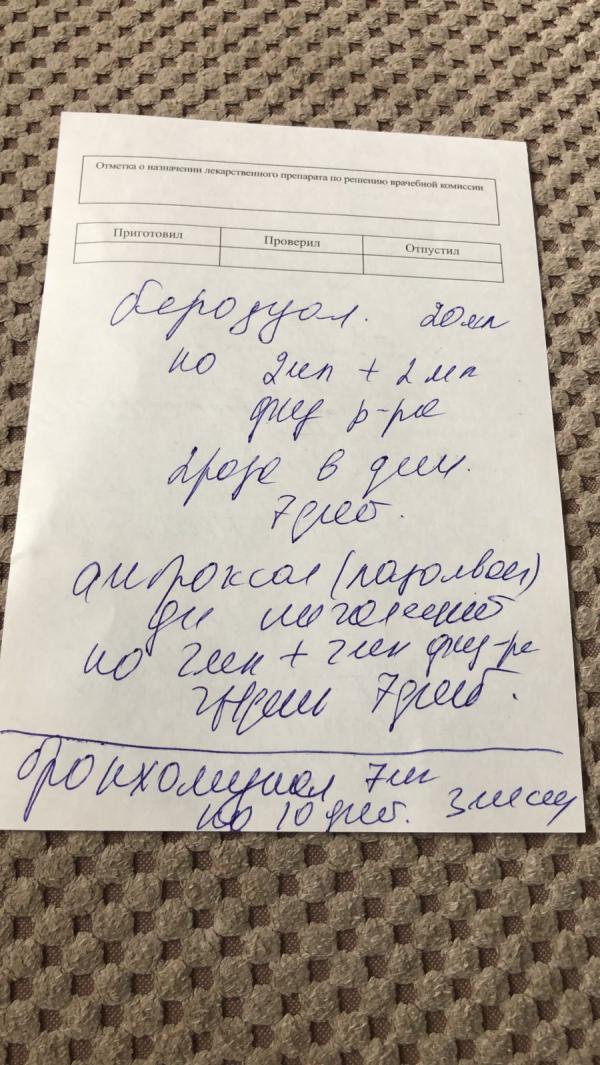 Отметка о назначении лекарственного препарата по решению врачебной комиссии
Приготовил Проверил Отпустил
беродуал. 20мл
по 2мл + 2мл
физ р-ра
2 раза в день.
7 дней.
амброксол (лазолван)
для ингаляций
по 2мл + 2мл физ р-ра
7 дней.
бронхомунал 7мг
по 10 дней. 3 месяц